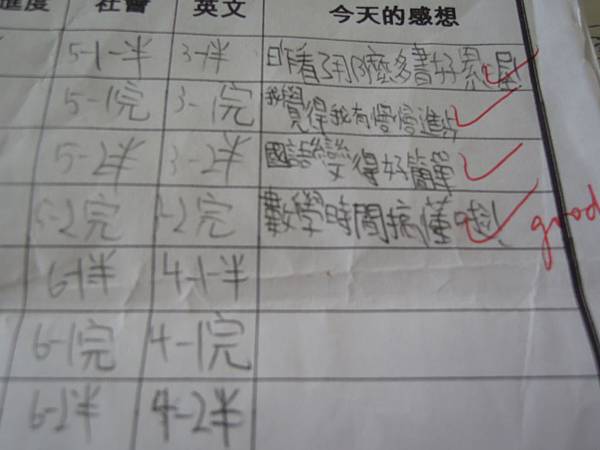 進度 社會 英文 今天的感想
5-1-半 3-1半 昨看了那麼多書好累喔!
5-1完 3-1完 我覺得我有慢慢進步
5-2半 3-2半 國語變得好簡單
5-2完 3-2完 數學時間搞懂啦! good
6-1半 4-1-半
6-1完 4-1完
6-2半 4-2半